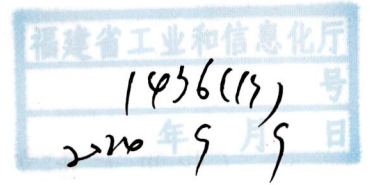 福建省工业和信息化厅
1456(13)号
2020年9月9日